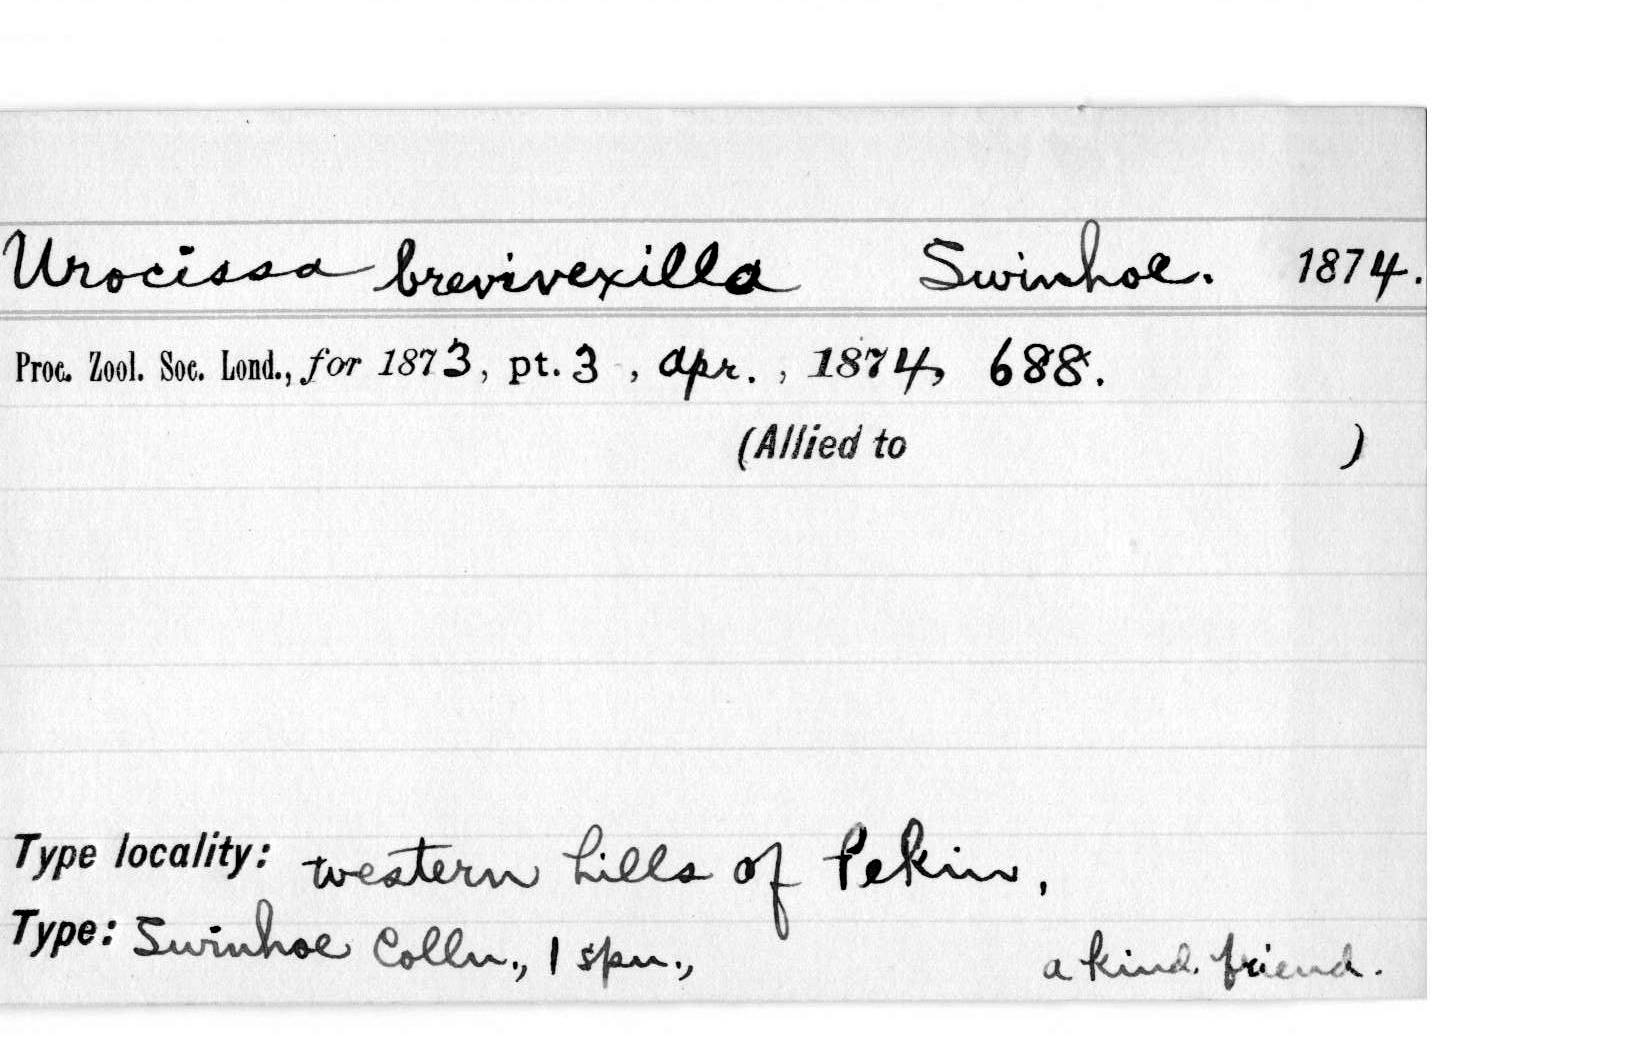 Urocissa brevivexilla Swinhoe. 1874.
Proc. Zool. Soc. Lond., for 1873, pt. 3, Apr., 1874, 688.
(Allied to )
Type locality: western hills of Pekin,
Type: Swinhoe Colln., 1 spn., a kind friend.